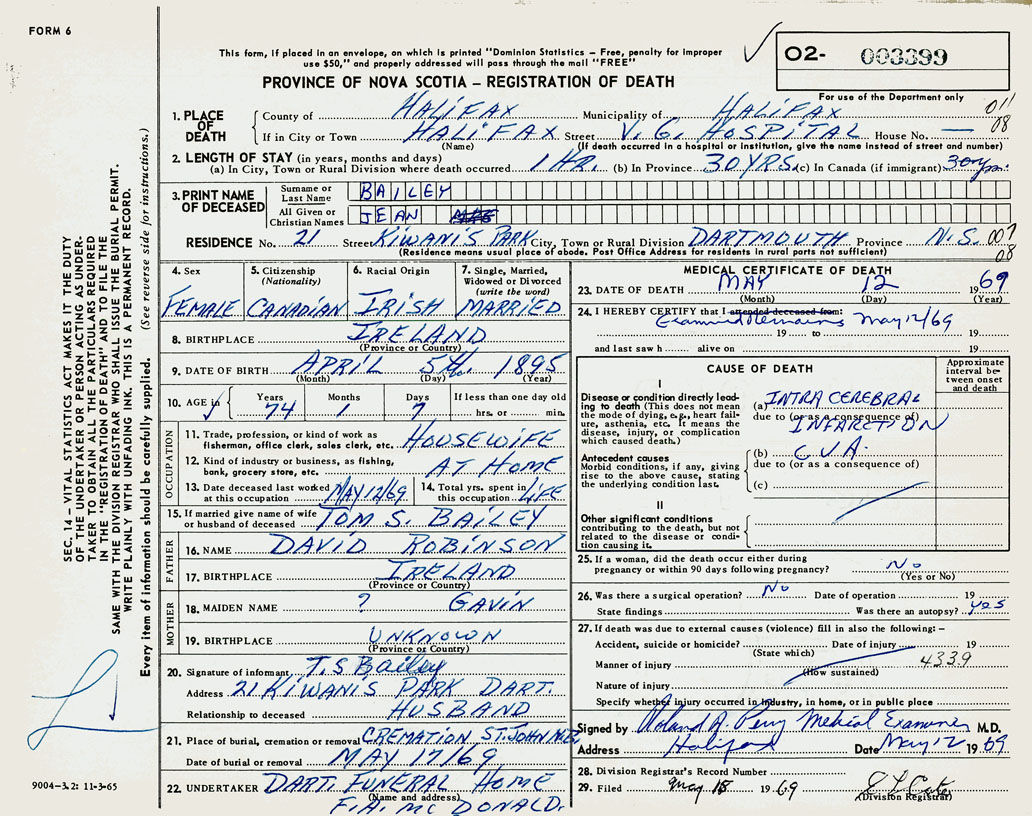 FORM 6
This form, if placed in an envelope, on which is printed "Dominion Statistics – Free, penalty for improper
use $50," and properly addressed will pass through the mail "FREE"
PROVINCE OF NOVA SCOTIA – REGISTRATION OF DEATH
O2- 003399
For use of the Department only
011
08
1. PLACE OF DEATH
County of HALIFAX Municipality of HALIFAX
If in City or Town HALIFAX Street V. G. HOSPITAL House No. —
(Name) (If death occurred in a hospital or institution, give the name instead of street and number)
2. LENGTH OF STAY (in years, months and days)
(a) In City, Town or Rural Division where death occurred 1 HR. (b) In Province 30 YRS. (c) In Canada (if immigrant) 30 yrs.
3. PRINT NAME OF DECEASED
Surname or Last Name BAILEY
All Given or Christian Names JEAN
RESIDENCE No. 21 Street KIWANIS PARK City, Town or Rural Division DARTMOUTH Province N.S. 007
08
(Residence means usual place of abode. Post Office Address for residents in rural parts not sufficient)
4. Sex FEMALE
5. Citizenship (Nationality) CANADIAN
6. Racial Origin IRISH
7. Single, Married, Widowed or Divorced (write the word) MARRIED
8. BIRTHPLACE IRELAND
(Province or Country)
9. DATE OF BIRTH APRIL 5th. 1895
(Month) (Day) (Year)
10. AGE in Years 74 Months 1 Days 7 If less than one day old hrs. or min.
OCCUPATION
11. Trade, profession, or kind of work as fisherman, office clerk, sales clerk, etc. HOUSEWIFE
12. Kind of industry or business, as fishing, bank, grocery store, etc. AT HOME
13. Date deceased last worked at this occupation MAY 12/69
14. Total yrs. spent in this occupation LIFE
15. If married give name of wife or husband of deceased TOM S. BAILEY
FATHER
16. NAME DAVID ROBINSON
17. BIRTHPLACE IRELAND
(Province or Country)
MOTHER
18. MAIDEN NAME ? GAVIN
19. BIRTHPLACE UNKNOWN
(Province or Country)
20. Signature of informant T.S Bailey
Address 21 KIWANIS PARK DART.
Relationship to deceased HUSBAND
21. Place of burial, cremation or removal CREMATION ST. JOHN N.B.
Date of burial or removal MAY 17/69
22. UNDERTAKER DART. FUNERAL HOME
(Name and address)
F.A. MC DONALD.
MEDICAL CERTIFICATE OF DEATH
23. DATE OF DEATH MAY 12 1969
(Month) (Day) (Year)
24. I HEREBY CERTIFY that I attended deceased from:
Examined Remains May 12/69
19 to 19
and last saw h alive on 19
CAUSE OF DEATH
Approximate interval between onset and death
I
Disease or condition directly leading to death (This does not mean the mode of dying, e.g., heart failure, asthenia, etc. It means the disease, injury, or complication which caused death.)
(a) INTRA CEREBRAL
due to (or as a consequence of)
INFARCTION
Antecedent causes
Morbid conditions, if any, giving rise to the above cause, stating the underlying condition last.
(b) C.V.A.
due to (or as a consequence of)
(c)
II
Other significant conditions
contributing to the death, but not related to the disease or condition causing it.
25. If a woman, did the death occur either during
pregnancy or within 90 days following pregnancy? No
(Yes or No)
26. Was there a surgical operation? No Date of operation 19
State findings Was there an autopsy? yes
27. If death was due to external causes (violence) fill in also the following: –
Accident, suicide or homicide? Date of injury 19
(State which)
Manner of injury 4339
(How sustained)
Nature of injury
Specify whether injury occurred in industry, in home, or in public place
Signed by Roland A. Perry Medical Examiner M.D.
Address Halifax Date May 12 1969
28. Division Registrar's Record Number
29. Filed May 18 1969
(Division Registrar)
SEC. 14 – VITAL STATISTICS ACT MAKES IT THE DUTY
OF THE UNDERTAKER OR PERSON ACTING AS UNDER-
TAKER TO OBTAIN ALL THE PARTICULARS REQUIRED
IN THE "REGISTRATION OF DEATH" AND TO FILE THE
SAME WITH THE DIVISION REGISTRAR WHO SHALL ISSUE THE BURIAL PERMIT.
WRITE PLAINLY WITH UNFADING INK. THIS IS A PERMANENT RECORD.
Every item of information should be carefully supplied. (See reverse side for instructions.)
9004-3.2: 11-3-65